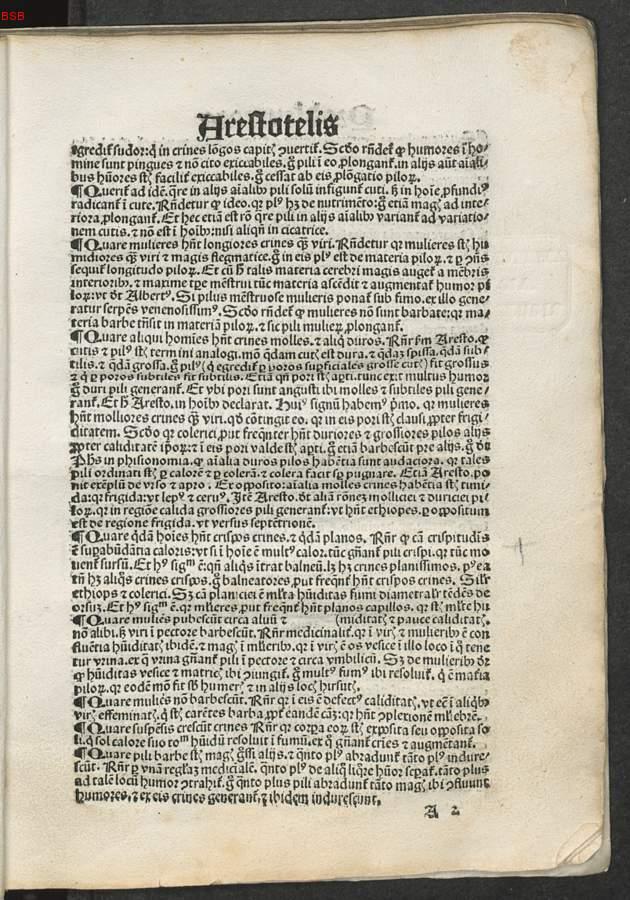 BSB
Arestotelis
egredit᷑ sudor: qͥ in crines lōgos capitꝭ ꝯuertit᷑. Scdo rn̄det᷑ ꝙ humores ī ho-
mine sunt pingues ⁊ nō cito exiccabiles. g̊ pili ī eo ꝓlongant᷑. in alijs aūt aīali-
bus hūores sꝭt facilit᷑ exiccabiles. g̊ cessat ab eis ꝓlōgatio piloꝝ.
¶ Querit᷑ ad idē. q̄re in alijs aīalibꝰ pili solū infigunt᷑ cuti. sꝫ in hoīe ꝓfundiꝰ
radicant᷑ ī cute. Rn̄detur ꝙ ideo. qꝛ plꝰ hꝫ de nutrimēto: g̊ etiā magꝭ ad inte-
riora ꝓlongant᷑. Et hec etiā est rō qre pili in alijs aīalibꝰ variant᷑ ad variatio-
nem cutis. ⁊ nō est ī hoībꝰ: nisi aliqñ in cicatrice.
¶ Quare mulieres hn̄t longiores crines q̄ꝫ viri. Rn̄detur qꝛ mulieres sꝭt hu
midiores q̄ꝫ viri ⁊ magis flegmatice. g̊ in eis plꝰ est de materia piloꝝ. ⁊ ꝑ ꝯn̄s
sequit᷑ longitudo piloꝝ. Et cū h̄ talis materia cerebri maģis auget᷑ a mēbris
interioribꝰ. ⁊ maxime tꝑe mēstrui tūc materia ascēdit ⁊ augmentat᷑ humor pi
loꝝ: vt dt̄ Albertꝰ. Si pilus mēstruose mulieris ponat᷑ sub fimo. ex illo gene-
ratur serpēs venenosissimꝰ. Scdo rn̄det᷑ ꝙ mulieres nō sunt barbate: qꝛ ma-
teria barbe trāsit in materiā piloꝝ. ⁊ sic pili mulierꝝ ꝓlongant᷑.
¶ Quare aliqui homīes hn̄t crines molles. ⁊ aliq̄ duros. Rn̄r fm̄ Aresto. ꝙ
cutis ⁊ pilꝰ sꝭt termini analogi. mō qdam cutꝭ est dura. ⁊ qdaꝫ spissa. qdā sub-
tilis. ⁊ qdā grossa. g̊ pilꝰ (q̇ egredit᷑ ꝑ poros suꝑficiales grosse cutꝭ) fit grossus
⁊ q̇ ꝑ poros subtiles fit subtilis. Etiā qn̄ pori sꝭt aꝑti. tunc exit multus humor
g̊ duri pili generant᷑. Et vbi pori sunt angusti ibi molles ⁊ subtiles pili gene-
rant᷑. Et h̄ Aresto. in hoībꝰ declarat. Huiꝰ signū habemꝰ ꝓmo. qꝛ mulieres
hn̄t molliores crines q̄ꝫ viri. qd̄ cōtingit eo. qꝛ in eis pori sꝭt clausi ꝓpter frigi-
ditatem. Scdo qꝛ colerici ꝓut freqn̄ter hn̄t duriores ⁊ grossiores pilos alijs
ꝓpter caliditatē ipoꝝ: ⁊ ī eis pori valde sꝭt aꝑti. g̊ etiā barbescūt pre alijs. g̊ dt̄
Phs in phisionomia. ꝙ aīalia duros pilos habētia sunt audaciora. qꝛ tales
pili ordinati sꝭt ꝑ calorē ⁊ ꝑ colerā: ⁊ colera facit sꝑ pugnare. Etiā Aresto. po
nit exēplū de vrso ⁊ apro. Ex opposito: aīalia molles crines habētia sꝭt timi-
da: qꝛ frigida: vt lepꝰ ⁊ ceruꝰ. Itē Aresto. dt̄ aliā rōnē molliciei ⁊ duriciei pi-
loꝝ. qꝛ in regiōe calida grossiores pili generant᷑: vt hn̄t ethiopes. ꝑ oppositum
est de regione frigida. vt versus septētrionē.
¶ Quare qdā hoīes hn̄t crispos crines. ⁊ qdā planos. Rn̄r ꝙ cā crispitudīs
ē suꝑabūdātia caloris: vt si ī hoīe ē multꝰ calor. tūc gn̄ant᷑ pili crispi. qꝛ tūc mo
uent᷑ sursū. Et hꝰ sigᵐ ē: qn̄ aliq̄s ītrat balneū. lꝫ hꝫ crines planissimos. pꝰea
tn̄ hꝫ aliq̄s crines crispos. g̊ balneatores ꝓut freqn̄t᷑ hn̄t crispos crines. Sil'r
ethiops ⁊ colerici. Sꝫ cā planiciei ē ml'ta hūiditas fumi diametral'r tēdēs de-
orsū. Et hꝰ sigᵐ ē. qꝛ ml'ieres ꝓut freqn̄t᷑ hn̄t planos capillos. qꝛ sꝭt ml'te hu
¶ Quare muliēs pubescūt circa aluū ⁊ (miditatꝭ ⁊ pauce caliditatꝭ.
nō alibi. sꝫ viri ī pectore barbescūt. Rn̄r medicinalit᷑. qꝛ ī virꝭ ⁊ mulieribꝰ ē con
fluētia hūiditatꝭ ibidē. ⁊ magꝭ ī ml'ieribꝰ. qꝛ ī virꝭ ē os vesice ī illo loco ī q̊ tene
tur vrina. ex q̊ vrina gn̄ant᷑ pili ī pectore ⁊ circa vmbilicū. Sꝫ de mulieribꝰ dr̄
ꝙ hūiditas vesice ⁊ matricꝭ ibi ꝯiungit᷑. g̊ multꝰ fumꝰ ibi resoluit᷑. q̇ ē mat̄ia
piloꝝ. qꝛ eodē mō fit sb̄ humerꝭ ⁊ in alijs locꝭ hirsutꝭ.
¶ Quare muliēs nō barbescūt. Rn̄r qꝛ ī eis ē defectꝰ caliditatꝭ. vt eē ī aliqbꝰ
virꝭ effeminatꝭ. q̇ sꝭt carētes barba ꝓpt᷑ eandē cāꝫ: qꝛ hn̄t ꝯplexionē ml'iebrē.
¶ Quare suspēsis crescūt crines Rn̄r qꝛ corꝑa eoꝝ sꝭt exposita seu opposita so
li. q̇ sol calore suo totᵐ hūidū resoluit ī fumū. ex q̊ gn̄ant᷑ crīes ⁊ augmētant᷑.
¶ Quare pili barbe sꝭt magꝭ gssi alijs. ⁊ qn̄to plꝰ abradunt᷑ tāto plꝰ indure-
scūt. Rn̄r ꝑ vnā reglaꝫ mediciale. qn̄to plꝰ de aliq̇ liq̇re hūor seꝑat᷑. tāto plus
ad talē locū humor ꝯtrahit᷑. g̊ qn̄to plus pili abradunt᷑ tāto magꝭ ibi ꝯfluunt
humores. ⁊ ex eis crines generant᷑. ⁊ ibidem indurescunt.
A 2